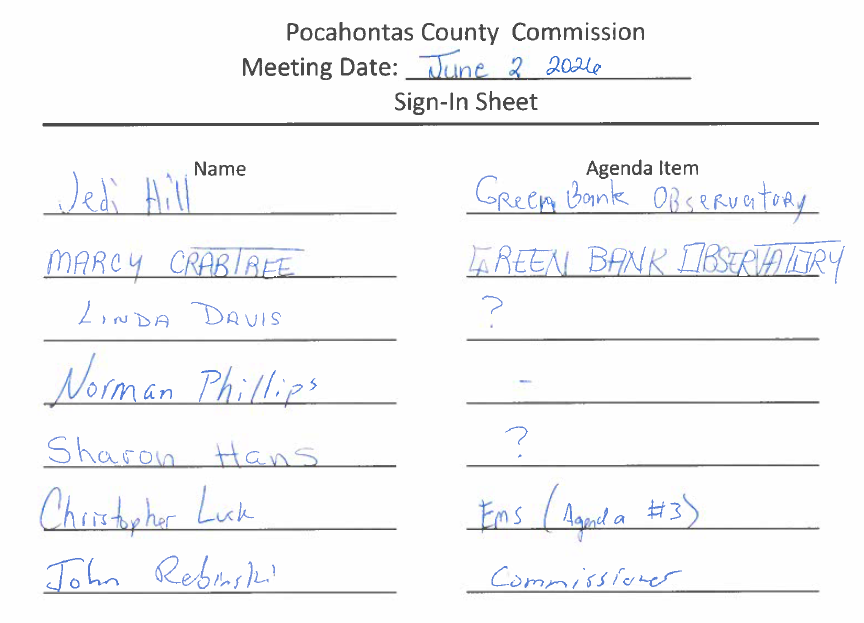 Pocahontas County Commission
Meeting Date: June 2 2026
Sign-In Sheet
Name Agenda Item
Jedi Hill Green Bank Observatory
MARCY CRABTREE GREEN BANK OBSERVATORY
LINDA DAVIS ?
Norman Phillips -
Sharon Hans ?
Christopher EMS (Agenda #3)
John Rebinski Commissioner